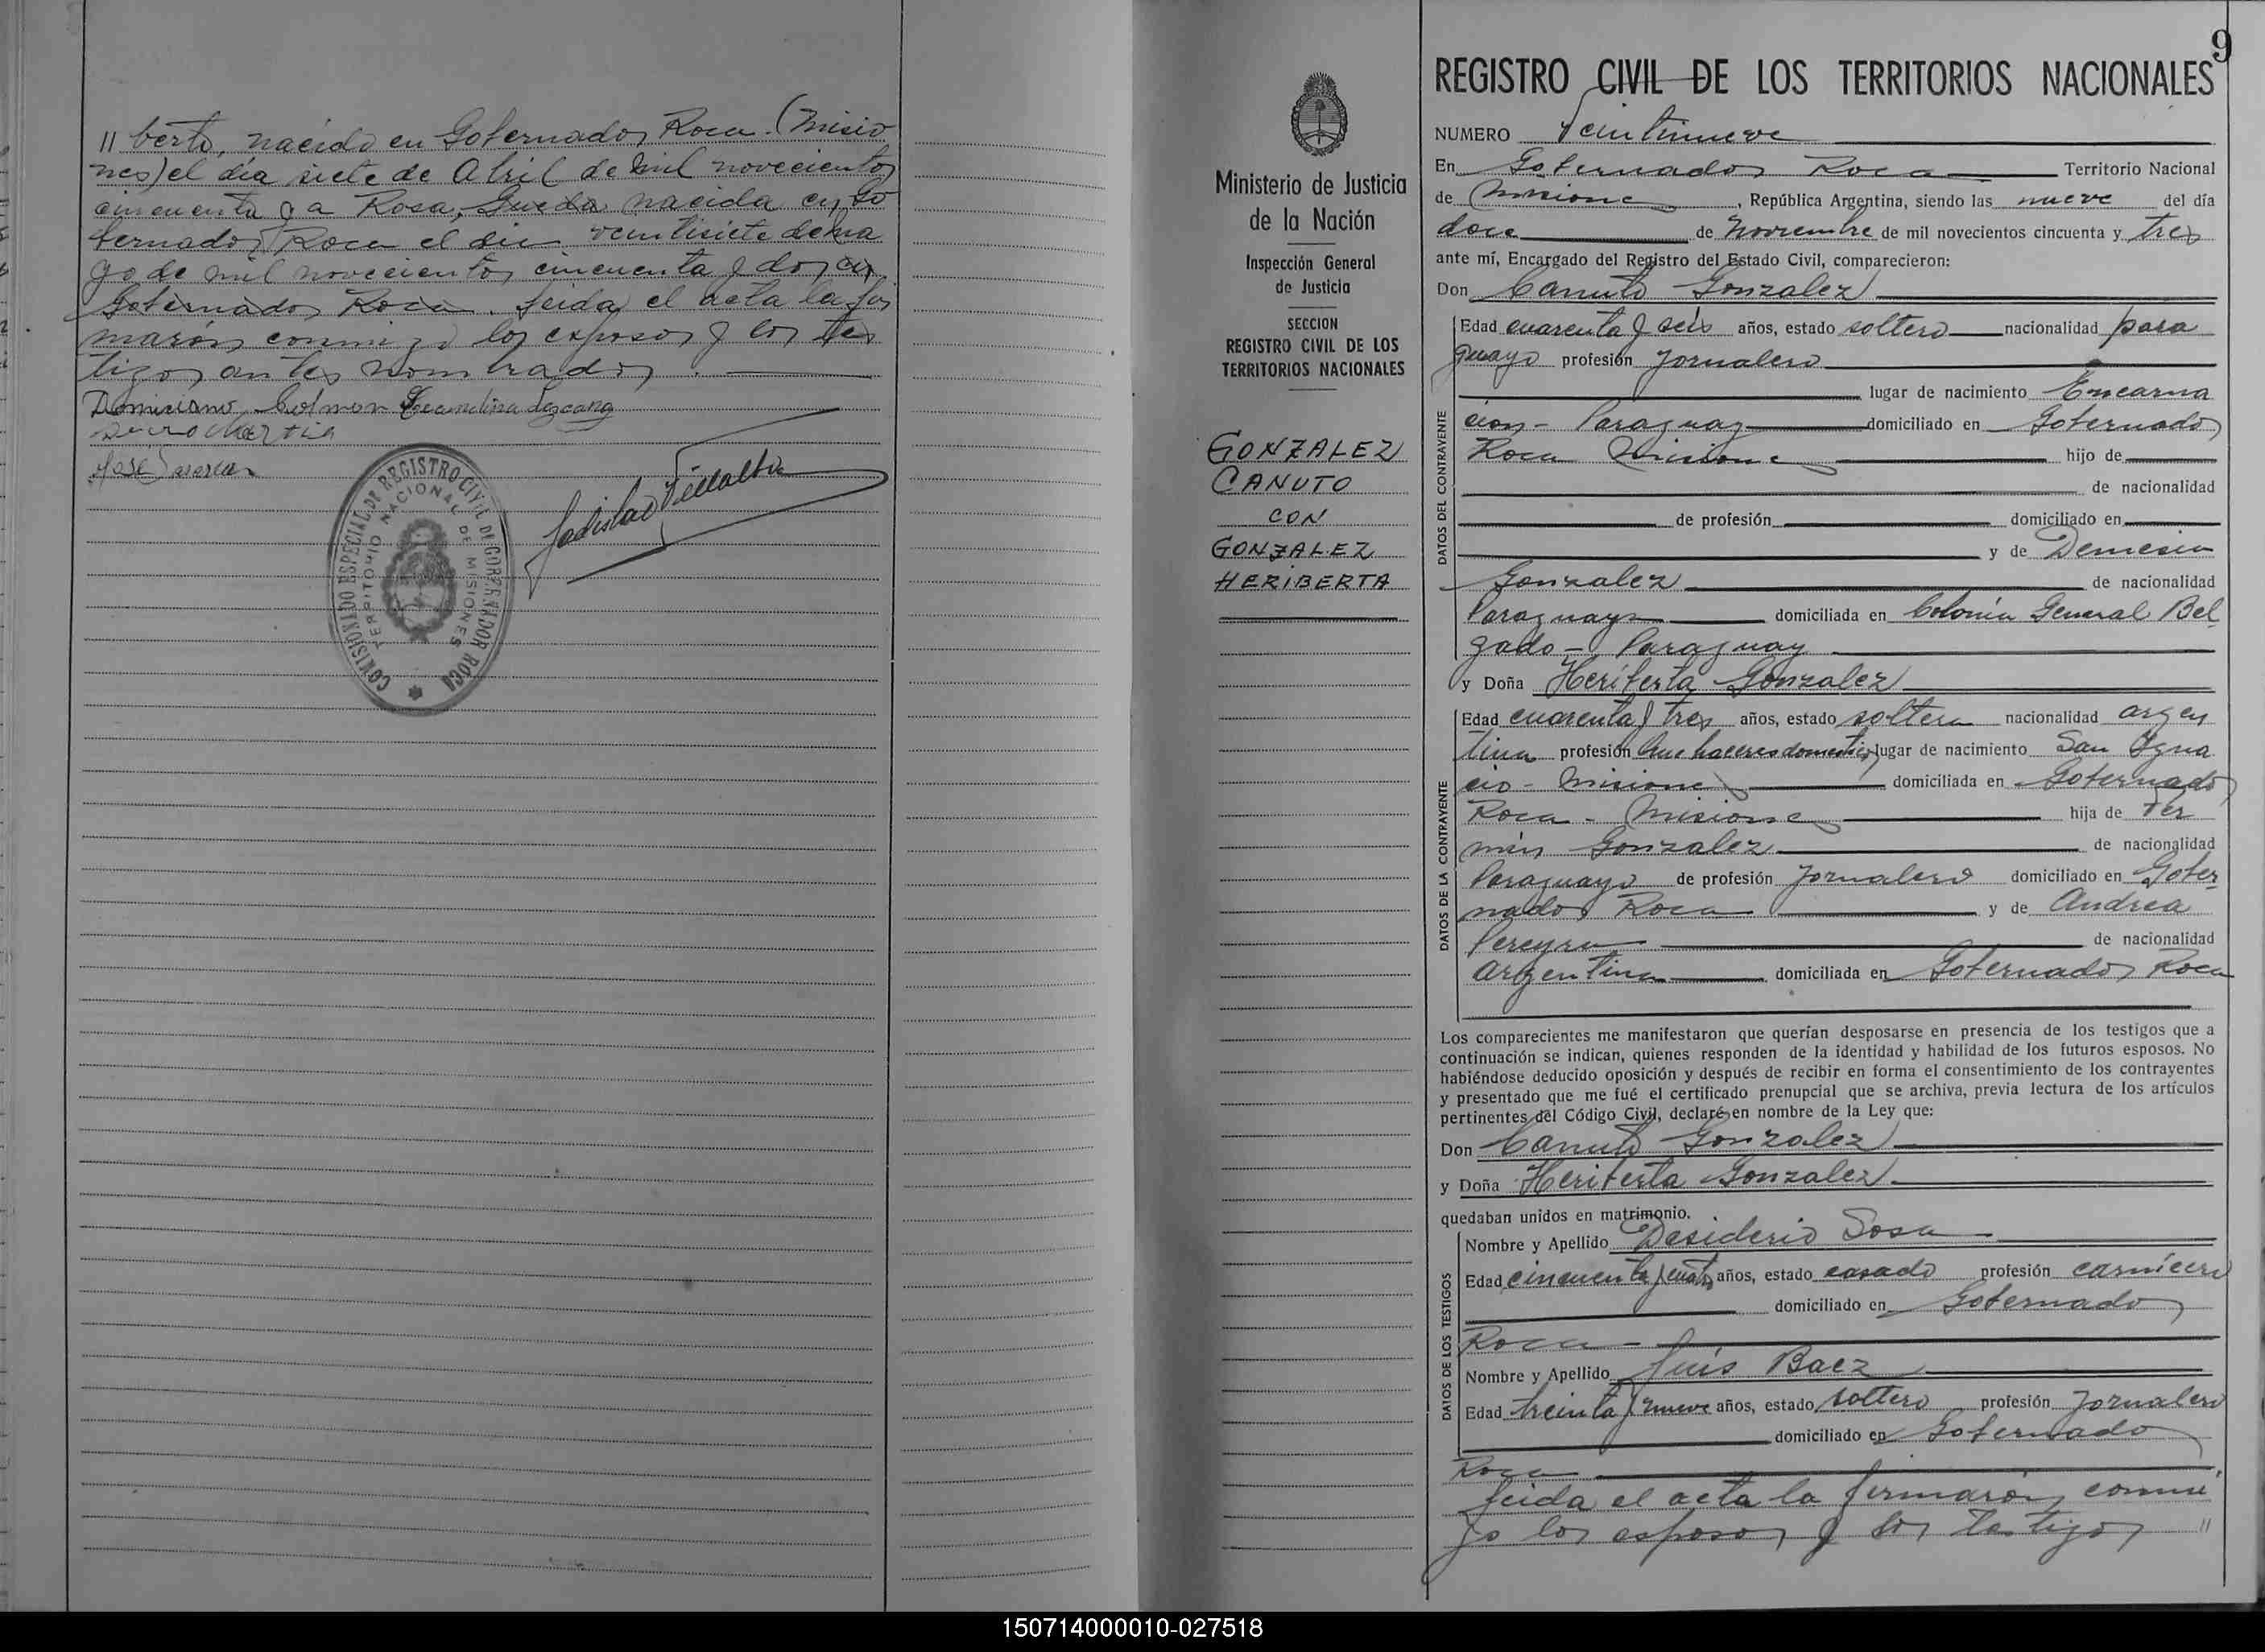 " berto, nacido en Gobernador Roca. (Misio
nes) el día siete de Abril de mil novecientos
cincuenta y a Rosa, nacida en Go
bernador Roca el dia veintisiete de Ma
yo de mil novecientos cincuenta y dos en
Gobernador Roca. Leida el acta la fir
maron conmigo los esposos y los tes
tigos antes nombrados.
José
Ladislao Villalba
COMISIONADO ESPECIAL DE REGISTRO CIVIL DE GOBERNADOR ROCA
TERRITORIO NACIONAL DE MISIONES
Ministerio de Justicia
de la Nación
Inspección General
de Justicia
SECCION
REGISTRO CIVIL DE LOS
TERRITORIOS NACIONALES
GONZALEZ
CANUTO
CON
GONZALEZ
HERIBERTA
9
REGISTRO CIVIL DE LOS TERRITORIOS NACIONALES
NUMERO Veintinueve
En Gobernador Roca Territorio Nacional
de Misiones, República Argentina, siendo las nueve del día
doce de Noviembre de mil novecientos cincuenta y tres
ante mí, Encargado del Registro del Estado Civil, comparecieron:
Don Canuto Gonzalez
DATOS DEL CONTRAYENTE
Edad cuarenta y seis años, estado soltero nacionalidad para
guayo profesión Jornalero
lugar de nacimiento Encarna
cion - Paraguay domiciliado en Gobernador
Roca Misiones hijo de
de nacionalidad
de profesión domiciliado en
y de Demesia
Gonzalez de nacionalidad
Paraguaya domiciliada en Colonia General Bel
gado - Paraguay
y Doña Heriberta Gonzalez
DATOS DE LA CONTRAYENTE
Edad cuarenta y tres años, estado soltera nacionalidad argen
tina profesión Que haceres domesticos lugar de nacimiento San Igna
cio - Misiones domiciliada en Gobernador
Roca - Misiones hija de Fer
min Gonzalez de nacionalidad
Paraguayo de profesión Jornalero domiciliado en Gober
nador Roca y de Andrea
Pereyra de nacionalidad
argentina domiciliada en Gobernador Roca
Los comparecientes me manifestaron que querían desposarse en presencia de los testigos que a
continuación se indican, quienes responden de la identidad y habilidad de los futuros esposos. No
habiéndose deducido oposición y después de recibir en forma el consentimiento de los contrayentes
y presentado que me fué el certificado prenupcial que se archiva, previa lectura de los artículos
pertinentes del Código Civil, declaré en nombre de la Ley que:
Don Canuto Gonzalez
y Doña Heriberta Gonzalez
quedaban unidos en matrimonio.
DATOS DE LOS TESTIGOS
Nombre y Apellido Desiderio Sosa
Edad cincuenta y cuatro años, estado casado profesión carnicero
domiciliado en Gobernador
Roca
Nombre y Apellido Luis Baez
Edad treinta y nueve años, estado soltero profesión Jornalero
domiciliado en Gobernador
Roca
Leida el acta la firmaron, conmi
go los esposos y los testigos "
150714000010-027518